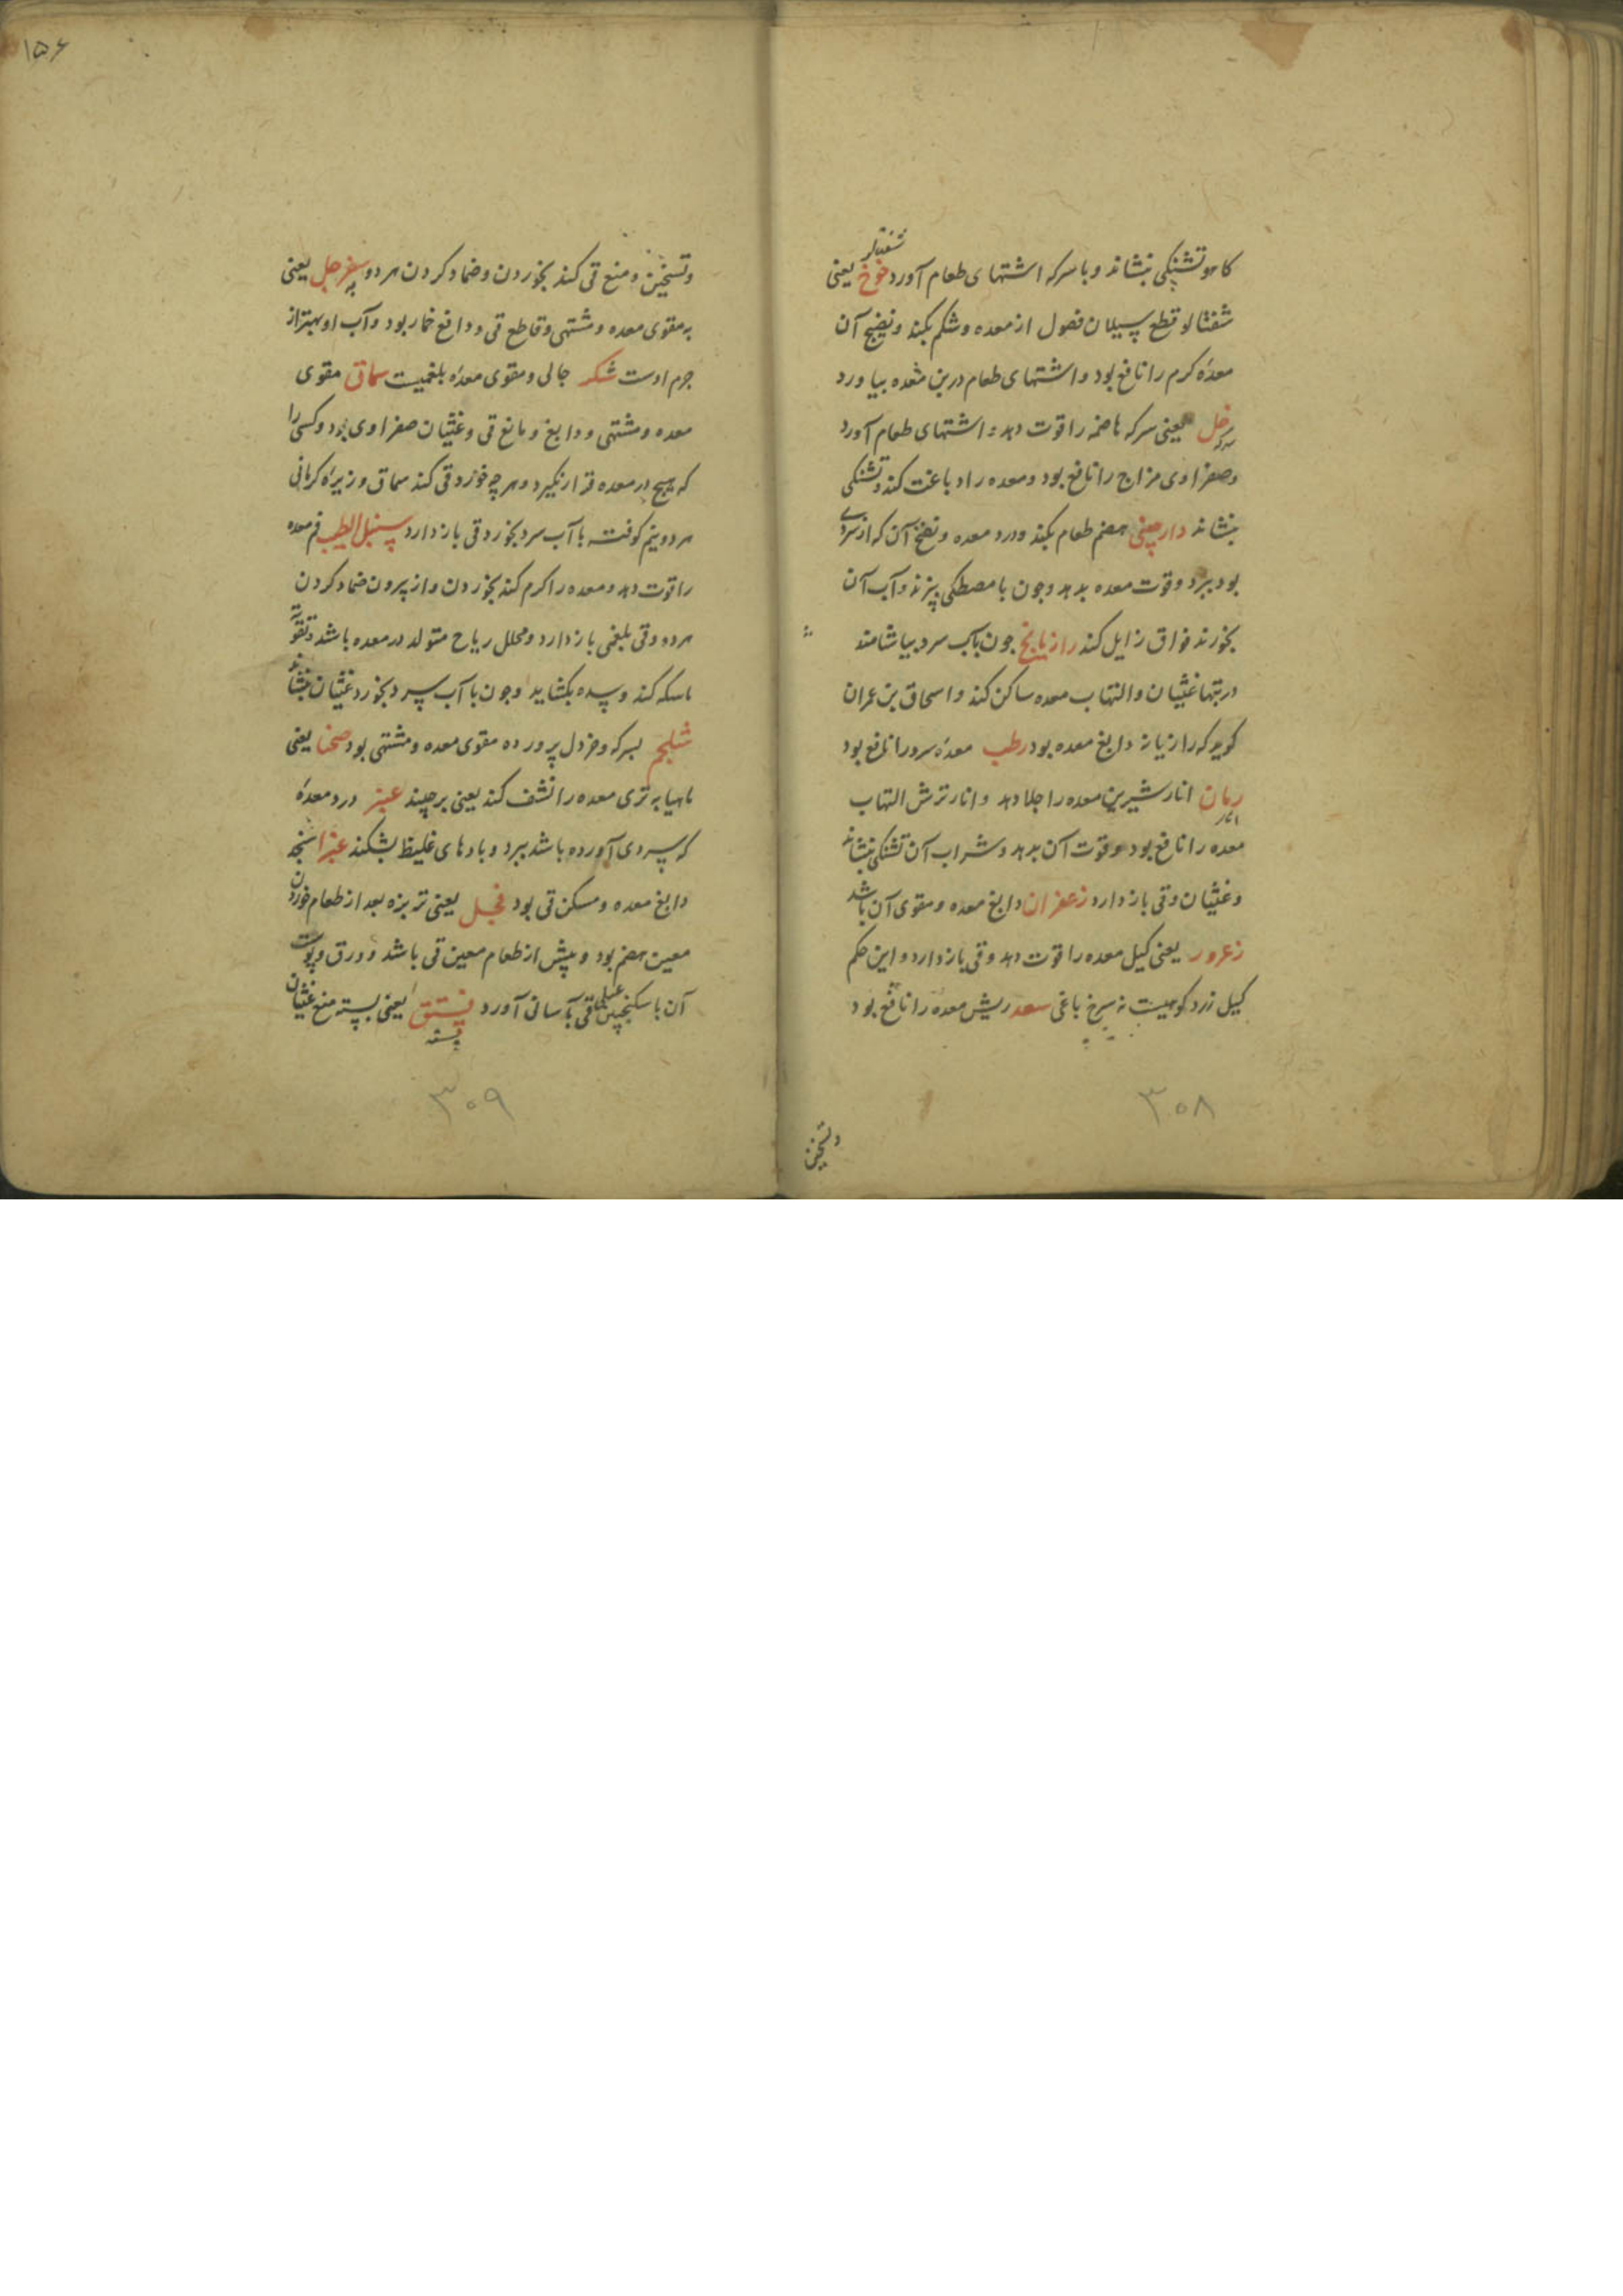 شفتالو
کاهو تشنکی بنشاند و با سرکه اشتهای طعام آورد خوخ یعنی
شفتالو قطع سیلان فضول از معده و شکم بکند و نضج آن
معدهٔ کرم را نافع بود و اشتهای طعام درین معده بیاورد
خل یعنی سرکه هاضمه را قوت دهد و اشتهای طعام آورد
سرکه
و صفراوی مزاج را نافع بود و معده را دباغت کند و تشنکی
بنشاند دارچینی هضم طعام بکند و درد معده و نفخ آن که از سردی
بود ببرد و قوت معده بدهد و چون با مصطکی بپزند و آب آن
بخورند فواق زایل کند رازیانج چون بآب سرد بیاشامند
در تبها غثیان و التهاب معده ساکن کند و اسحاق بن عمران
کوید که رازیانه دابغ معده بود رطب معدهٔ سرد را نافع بود
رمان انار شیرین معده را جلا دهد و انار ترش التهاب
انار
معده را نافع بود و قوت آن بدهد و شراب آن تشنکی بنشاند
و غثیان و قی باز دارد زعفران دابغ معده و مقوی آن باشد
زعرور یعنی کیل معده را قوت دهد و قی باز دارد و این حکم
کیل زرد کوهیست نه سرخ باغی سعد ریش معده را نافع بود
۳۰۸
و تسخین
۱۵۶
و تسخین و منع قی کند بخوردن و ضماد کردن هر دو سفرجل یعنی
به
به مقوی معده و مشتهی و قاطع قی و دافع خمار بود و آب او بهتر از
جرم اوست شکر جالی و مقوی معدهٔ بلغمیست سماق مقوی
معده و مشتهی و دابغ و مانع قی و غثیان صفراوی بود و کسی را
که هیچ در معده قرار نکیرد و هر چه خورد قی کند سماق و زیرهٔ کرمانی
هر دو نیم کوفته با آب سرد بخورد قی باز دارد سنبل الطیب فم معده
را قوت دهد و معده را کرم کند بخوردن و از بیرون ضماد کردن
هر دو و قی بلغمی باز دارد و محلل ریاح متولد در معده باشد و تقویت
ماسکه کند و سده بکشاید و چون با آب سرد بخورد غثیان بنشاند
شلجم بسرکه و خردل پرورده مقوی معده و مشتهی بود صحنا یعنی
ماهیابه تری معده را نشف کند یعنی برچیند عنبر درد معدهٔ
که سردی آورده باشد ببرد و بادهای غلیظ بشکند
دابغ معده و مسکن قی بود فجل یعنی تربزه بعد از طعام خوردن
معین هضم بود و پیش از طعام معین قی باشد و ورق و پوست
آن با سکنجبین عسلی قی بآسانی آورد فستق یعنی پسته منع غثیان
پسته
۳۰۹